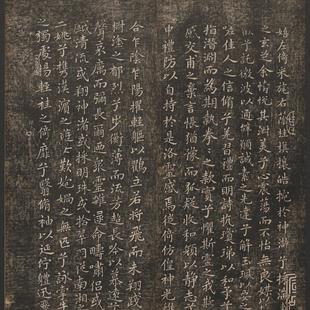 嬉左倚采旄右蔭桂旗攘皓腕於神滸兮採湍
之玄芝余情悅其淑美兮心震蕩而不怡無良媒
兮託微波以通辭願誠素之先達兮解玉珮以要之
嗟佳人之信脩兮羌習禮而明詩抗瓊珶以和予兮
指潛淵而為期執拳之款實兮懼斯靈之我欺
感交甫之棄言悵猶豫而狐疑收和顏以靜志兮
申禮防以自持於是洛靈感焉徙倚仿偟神光離
合乍陰乍陽擢輕軀以鶴立若將飛而未翔踐
椒塗之郁烈兮步衡薄而流芳超長吟以慕遠兮
聲哀厲而彌長爾迺衆靈雜遝命疇嘯侶或
戲清流或翔神渚或採明珠或拾翠羽從南湘之
二姚兮攜漢濱之游女歎匏媧之無匹兮詠牽牛
之獨處揚輕袿之倚靡兮翳脩袖以延佇體迅飛